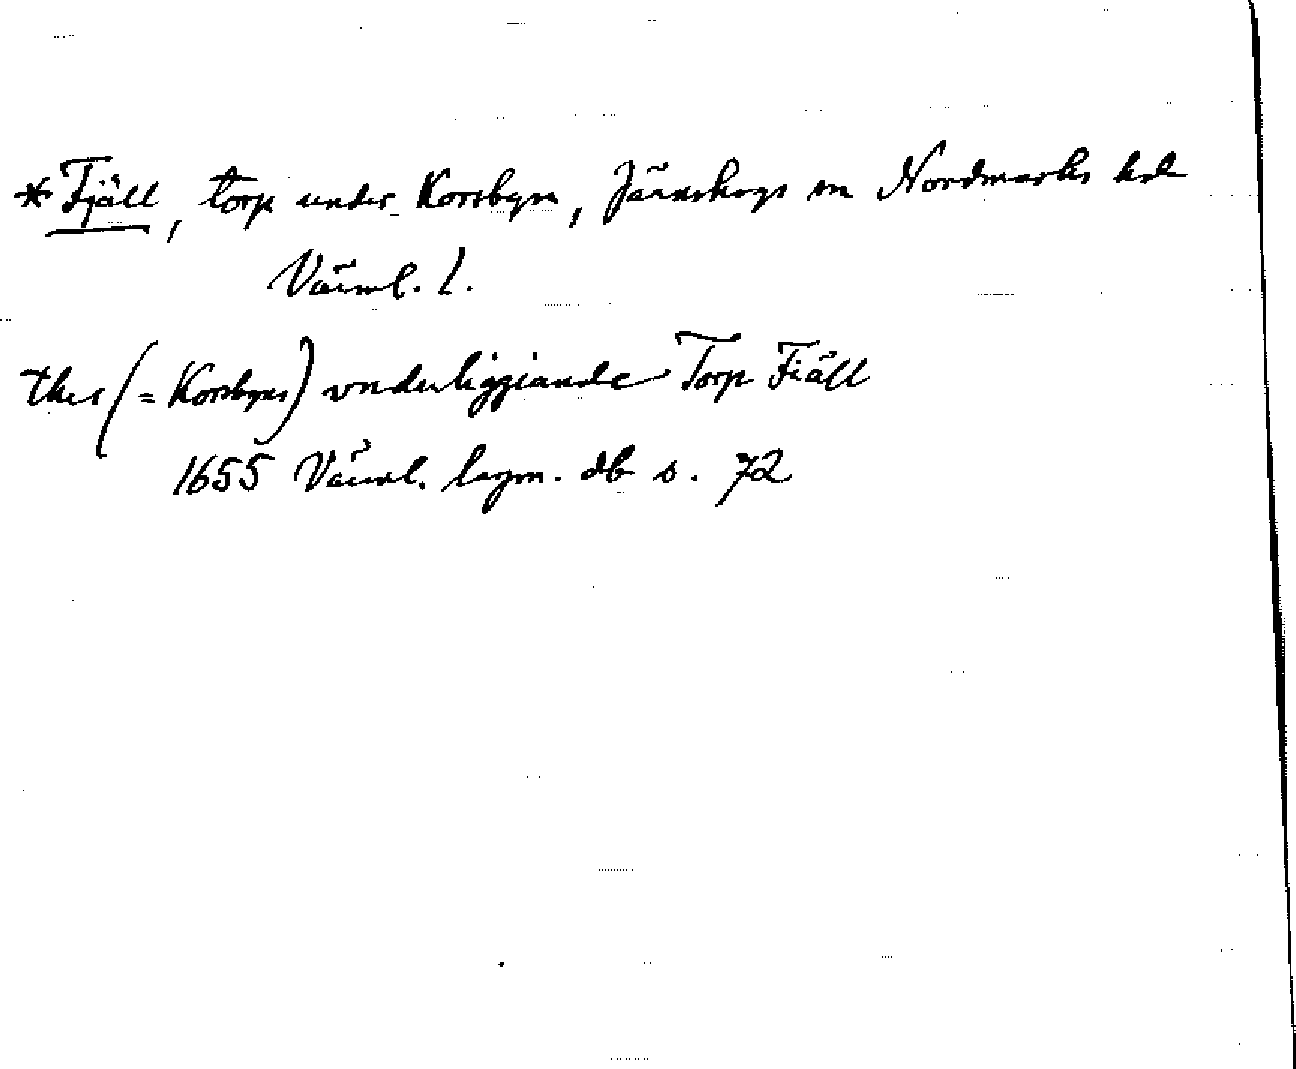 *Fjäll, torp under Korsbyn, Järnskogs sn Nordmarks hd
Värml. l.
thes (= Korsbyns) vnderliggiande Torp Fiäll
1655 Värml. lagm. db s. 72